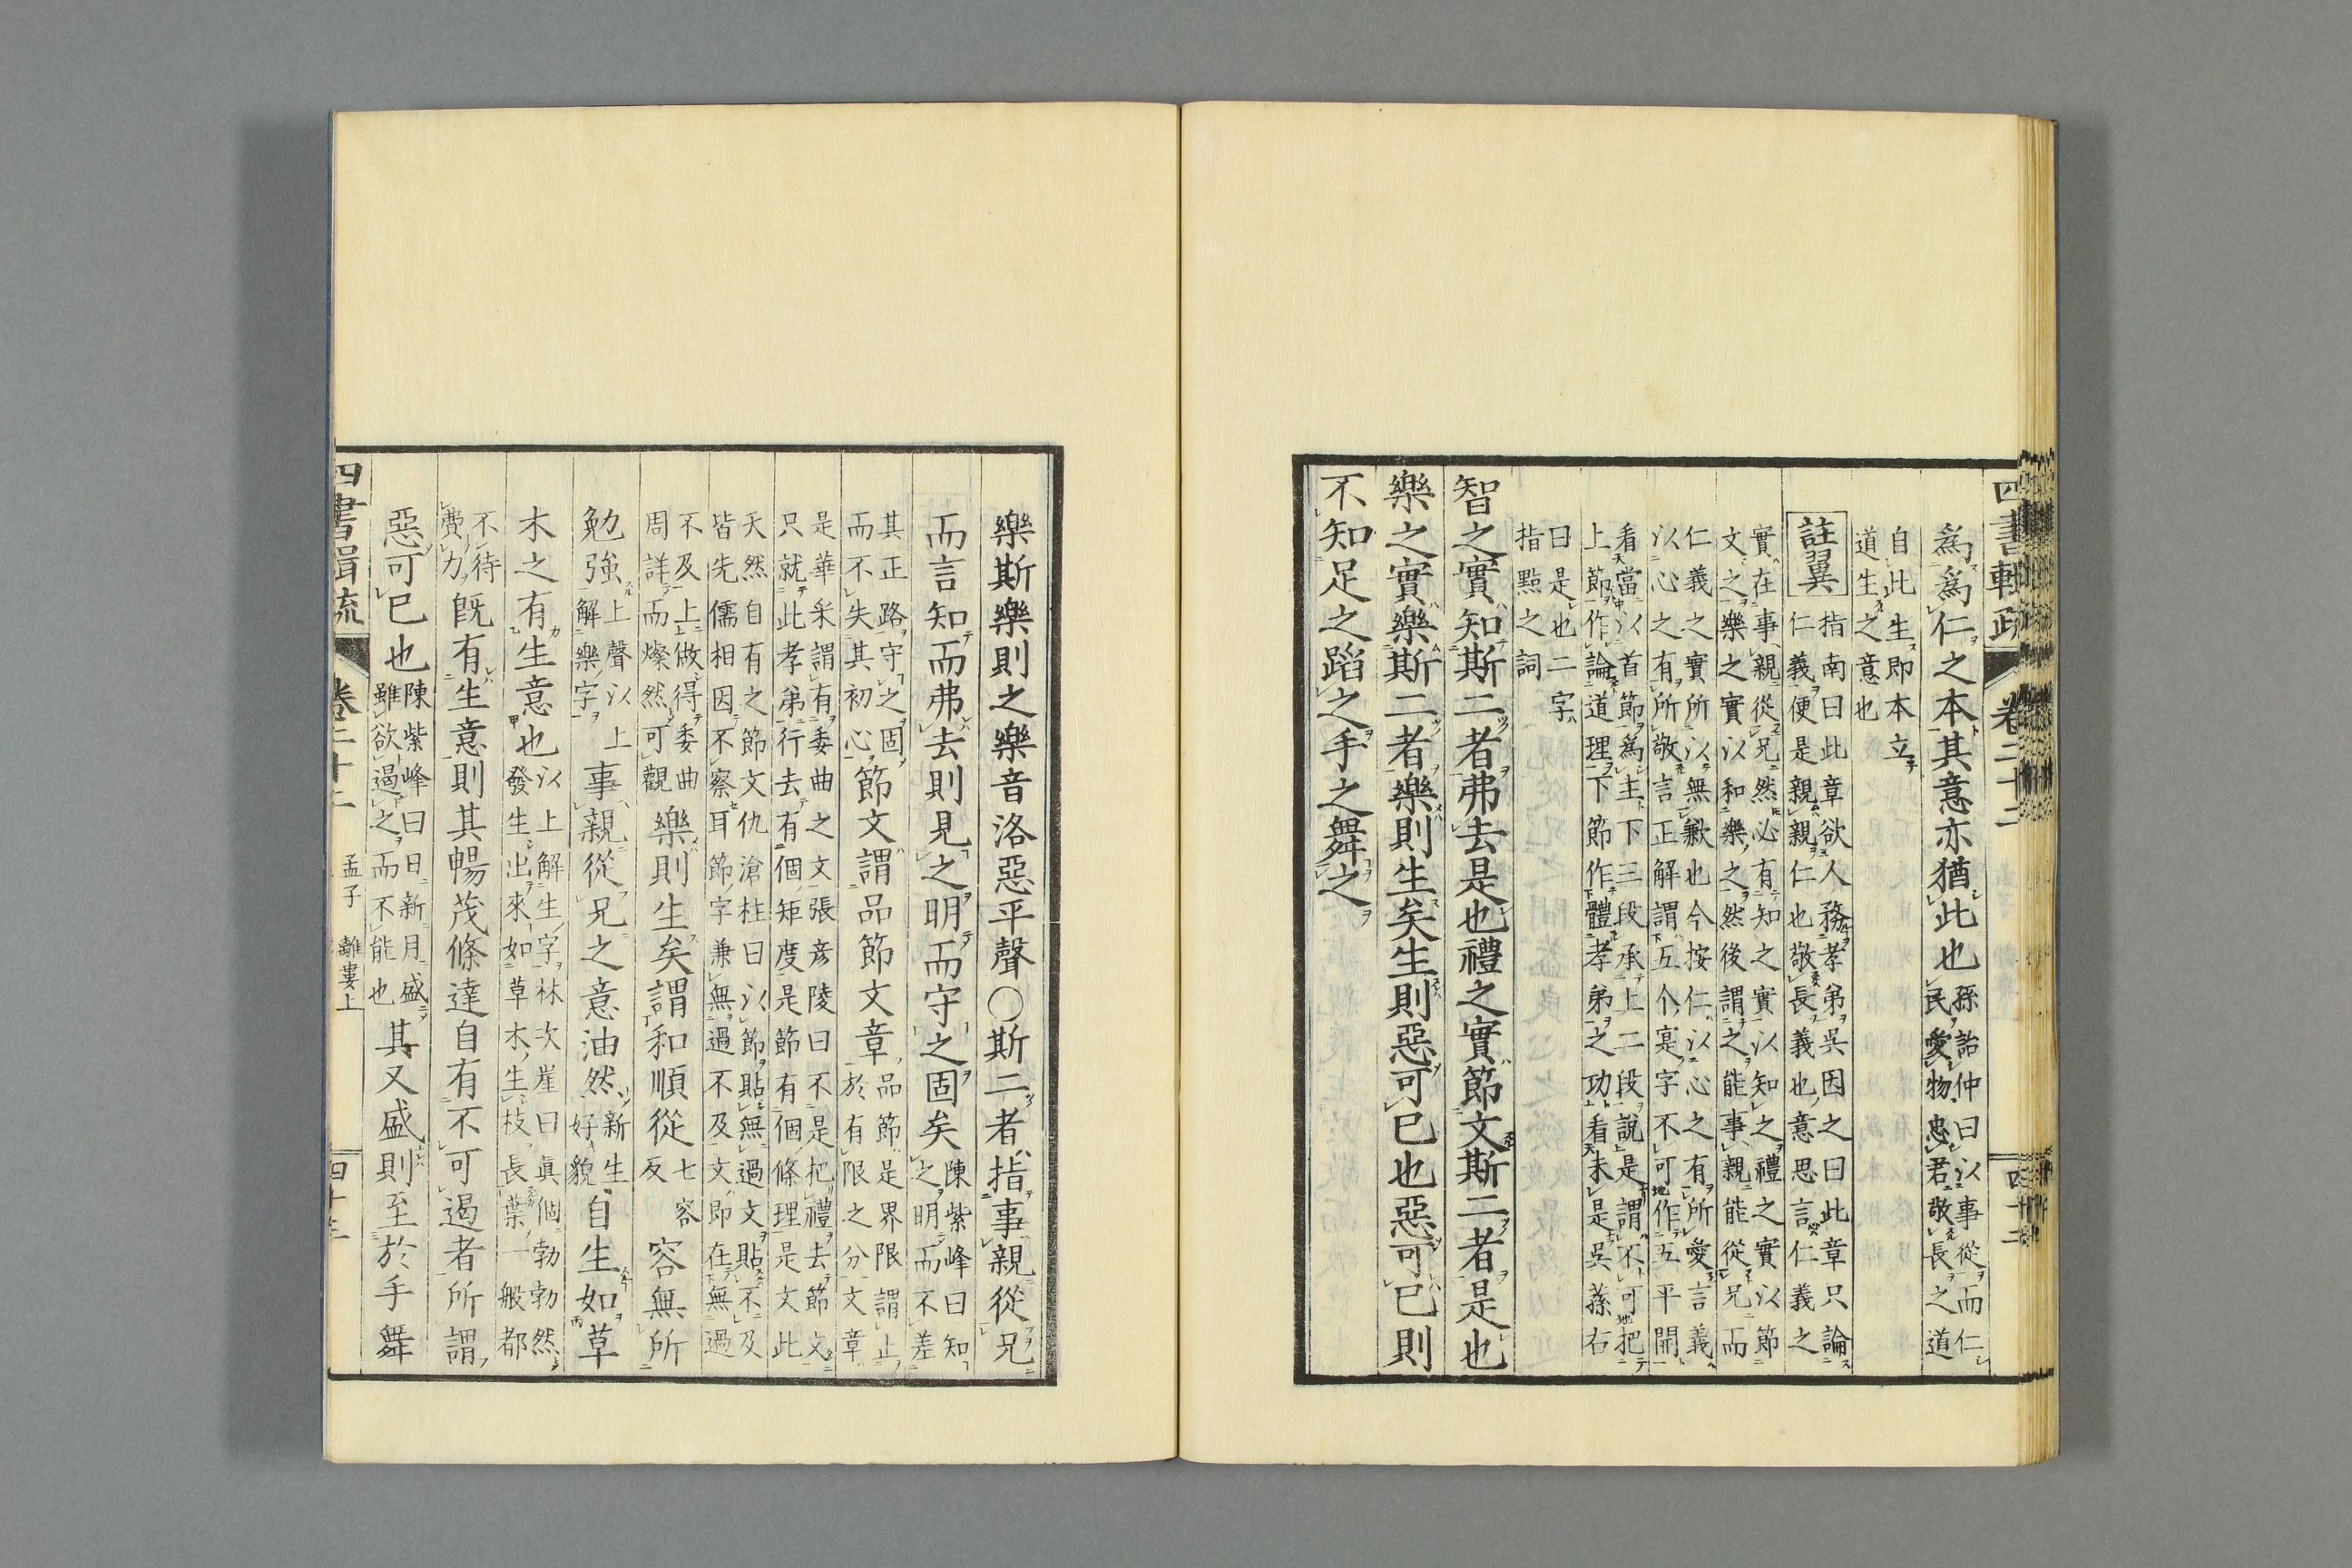 四書輯疏 卷二十二 四十二
為為仁之本其意亦猶此也孫詒仲曰以事從而仁
民愛物忠君敬長之道
自此生即本立
道生之意也
註翼 指南曰此章欲人務孝弟吳因之曰此章只論
仁義便是親親仁也敬長義也意思言仁義之
實在事親從兄然必有知之實以知之禮之實以節
文之樂之實以和樂之然後謂之能事親能從兄而
仁義之實所以無歉也今按仁以心之有所愛言義
以心之有所敬言正解謂五个寔字不可作五平開
看當以首節為主下三段承上二段說是謂不可把
上節作論道理下節作體孝弟之功看未是吳蓀右
曰是也二字
指點之詞
智之實知斯二者弗去是也禮之實節文斯二者是也
樂之實樂斯二者樂則生矣生則惡可已也惡可已則
不知足之蹈之手之舞之
樂斯樂則之樂音洛惡平聲〇斯二者指事親從兄
而言知而弗去則見之明而守之固矣陳紫峰曰知
之明而不差
其正路守之固
而不失其初心節文謂品節文章品節是界限謂止
於有限之分文章
是華采謂有委曲之文張彥陵曰不是把禮去節文
只就此孝弟行去有個矩度是節有個條理是文此
天然自有之節文仇滄柱曰以節貼無過文貼不及
皆先儒相因不察耳節字兼無過不及文即在無過
不及上做得委曲
周詳而燦然可觀樂則生矣謂和順從七容
反容無所
勉強上聲以上
解樂字事親從兄之意油然新生
好貌自生如草
木之有生意也以上解生字林次崖曰眞個勃勃然
發生出來如草木生枝長葉一般都
不待
費力既有生意則其暢茂條達自有不可遏者所謂
惡可已也陳紫峰曰日新月盛
雖欲遏之而不能也其又盛則至於手舞
四書輯疏 卷二十二 孟子 離婁上 四十三